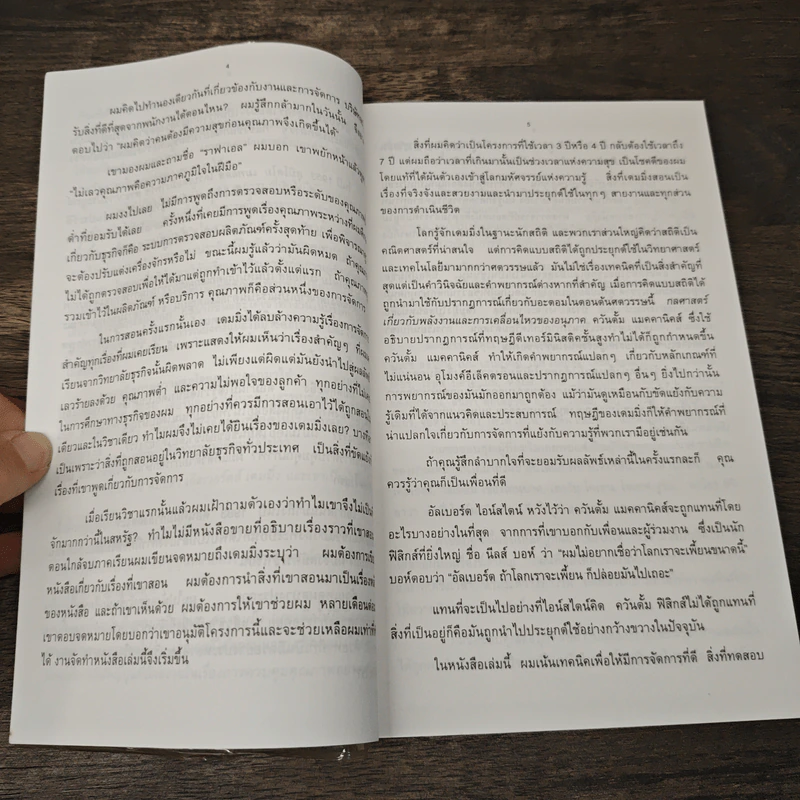 4
ผมคิดไปทำนองเดียวกันที่เกี่ยวข้องกับงานและการจัดการ
รับสิ่งที่ดีที่สุดจากพนักงานได้ตอนไหน? ผมรู้สึกกล้ามากในวันนั้น
ตอบไปว่า "ผมคิดว่าคนต้องมีความสุขก่อนคุณภาพจึงเกิดขึ้นได้"
เขามองผมและถามชื่อ "ราฟาเอล" ผมบอก เขาพยักหน้าแล้วพูด
"ไม่เลวคุณภาพคือความภาคภูมิใจในฝีมือ"
ผมงงไปเลย ไม่มีการพูดถึงการตรวจสอบหรือระดับของคุณภาพ
ต่ำที่ยอมรับได้เลย ครั้งหนึ่งที่เคยมีการพูดเรื่องคุณภาพระหว่างที่
เกี่ยวกับธุรกิจก็คือ ระบบการตรวจสอบผลิตภัณฑ์ครั้งสุดท้าย เพื่อพิจารณา
จะต้องปรับแต่งเครื่องจักรหรือไม่ ขณะนี้ผมรู้แล้วว่ามันผิดหมด ถ้า
ไม่ได้ถูกตรวจสอบเพื่อให้ได้มาแต่ถูกทำเข้าไว้แล้วตั้งแต่แรก ถ้าคุณภาพ
รวมเข้าไว้ในผลิตภัณฑ์ หรือบริการ คุณภาพก็คือส่วนหนึ่งของการจัดการ
ในการสอนครั้งแรกนั้นเอง เดมมิ่งได้ลบล้างความรู้เรื่องการจัดการ
สำคัญทุกเรื่องที่ผมเคยเรียน เพราะแสดงให้ผมเห็นว่าเรื่องสำคัญๆ ที่
เรียนจากวิทยาลัยธุรกิจนั้นผิดพลาด ไม่เพียงแต่ผิดแต่มันยังนำไปสู่ผลผลิต
เลวร้ายลงด้วย คุณภาพต่ำ และความไม่พอใจของลูกค้า ทุกอย่างที่ไม่
ในการศึกษาทางธุรกิจของผม ทุกอย่างที่ควรมีการสอนเอาไว้ได้ถูกสอน
เดียวและในวิชาเดียว ทำไมผมจึงไม่เคยได้ยินเรื่องของเดมมิ่งเลย? บางที
เป็นเพราะว่าสิ่งที่ถูกสอนอยู่ในวิทยาลัยธุรกิจทั่วประเทศ เป็นสิ่งที่ขัดแย้ง
เรื่องที่เขาพูดเกี่ยวกับการจัดการ
เมื่อเรียนวิชาแรกนั้นแล้วผมเฝ้าถามตัวเองว่าทำไมเขาจึงไม่เป็น
จักมากกว่านี้ในสหรัฐ? ทำไมไม่มีหนังสือขายที่อธิบายเรื่องราวที่เขาสอน
ตอนใกล้จบภาคเรียนผมเขียนจดหมายถึงเดมมิ่งระบุว่า ผมต้องการ
หนังสือเกี่ยวกับเรื่องที่เขาสอน ผมต้องการนำสิ่งที่เขาสอนมาเป็นเรื่อง
ของหนังสือ และถ้าเขาเห็นด้วย ผมต้องการให้เขาช่วยผม หลายเดือนต่อ
เขาตอบจดหมายโดยบอกว่าเขาอนุมัติโครงการนี้และจะช่วยเหลือผมเท่าที่
ได้ งานจัดทำหนังสือเล่มนี้จึงเริ่มขึ้น
5
สิ่งที่ผมคิดว่าเป็นโครงการที่ใช้เวลา 3 ปีหรือ 4 ปี กลับต้องใช้เวลาถึง
7 ปี แต่ผมถือว่าเวลาที่เกินมานั้นเป็นช่วงเวลาแห่งความสุข เป็นโชคดีของผม
โดยแท้ที่ได้ผันตัวเองเข้าสู่โลกมหัศจรรย์แห่งความรู้ สิ่งที่เดมมิ่งสอนเป็น
เรื่องที่จริงจังและสวยงามและนำมาประยุกต์ใช้ในทุกๆ สายงานและทุกส่วน
ของการดำเนินชีวิต
โลกรู้จักเดมมิ่งในฐานะนักสถิติ และพวกเราส่วนใหญ่คิดว่าสถิติเป็น
คณิตศาสตร์ที่น่าสนใจ แต่การคิดแบบสถิติได้ถูกประยุกต์ใช้ในวิทยาศาสตร์
และเทคโนโลยีมามากกว่าศตวรรษแล้ว มันไม่ใช่เรื่องเทคนิคที่เป็นสิ่งสำคัญที่
สุดแต่เป็นคำวินิจฉัยและคำพยากรณ์ต่างหากที่สำคัญ เมื่อการคิดแบบสถิติได้
ถูกนำมาใช้กับปรากฏการณ์เกี่ยวกับอะตอมในตอนต้นศตวรรษนี้ กลศาสตร์
เกี่ยวกับพลังงานและการเคลื่อนไหวของอนุภาค ควันตั้ม แมคคานิคส์ ซึ่งใช้
อธิบายปรากฏการณ์ที่ทฤษฎีดีเทอร์มินิสติคชั้นสูงทำไม่ได้ก็ถูกกำหนดขึ้น
ควันตั้ม แมคคานิคส์ ทำให้เกิดคำพยากรณ์แปลกๆ เกี่ยวกับหลักเกณฑ์ที่
ไม่แน่นอน อุโมงค์อีเล็คตรอนและปรากฏการณ์แปลกๆ อื่นๆ ยิ่งไปกว่านั้น
การพยากรณ์ของมันมักออกมาถูกต้อง แม้ว่ามันดูเหมือนกับขัดแย้งกับความ
รู้เดิมที่ได้จากแนวคิดและประสบการณ์ ทฤษฎีของเดมมิ่งก็ให้คำพยากรณ์ที่
น่าแปลกใจเกี่ยวกับการจัดการที่แย้งกับความรู้ที่พวกเรามีอยู่เช่นกัน
ถ้าคุณรู้สึกลำบากใจที่จะยอมรับผลลัพธ์เหล่านี้ในครั้งแรกละก็ คุณ
ควรรู้ว่าคุณก็เป็นเพื่อนที่ดี
อัลเบอร์ต ไอน์สไตน์ หวังไว้ว่า ควันตั้ม แมคคานิคส์จะถูกแทนที่โดย
อะไรบางอย่างในที่สุด จากการที่เขาบอกกับเพื่อนและผู้ร่วมงาน ซึ่งเป็นนัก
ฟิสิกส์ที่ยิ่งใหญ่ ชื่อ นีลส์ บอห์ ว่า "ผมไม่อยากเชื่อว่าโลกเราจะเพี้ยนขนาดนี้"
บอห์ตอบว่า "อัลเบอร์ต ถ้าโลกเราจะเพี้ยน ก็ปล่อยมันไปเถอะ"
แทนที่จะเป็นไปอย่างที่ไอน์สไตน์คิด ควันตั้ม ฟิสิกส์ไม่ได้ถูกแทนที่
สิ่งที่เป็นอยู่ก็คือมันถูกนำไปประยุกต์ใช้อย่างกว้างขวางในปัจจุบัน
ในหนังสือเล่มนี้ ผมเน้นเทคนิคเพื่อให้มีการจัดการที่ดี สิ่งที่ทดสอบ